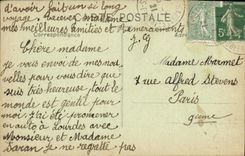 d'avoir fait un si long
voyage. Recevez
mes meilleures amitiés et remerciements
J. G
CARTE POSTALE
Correspondance
Chère madame
je vous envoie de mes nou
velles pour vous dire que
suis très heureuse tout le
monde est gentil pour
moi, j'ai été promener
en auto à Lourdes avec
Monsieur et Madame
Saran je ne regrette pas
Madame Marmet
7 rue Alfred Stevens
Paris
9eme
5